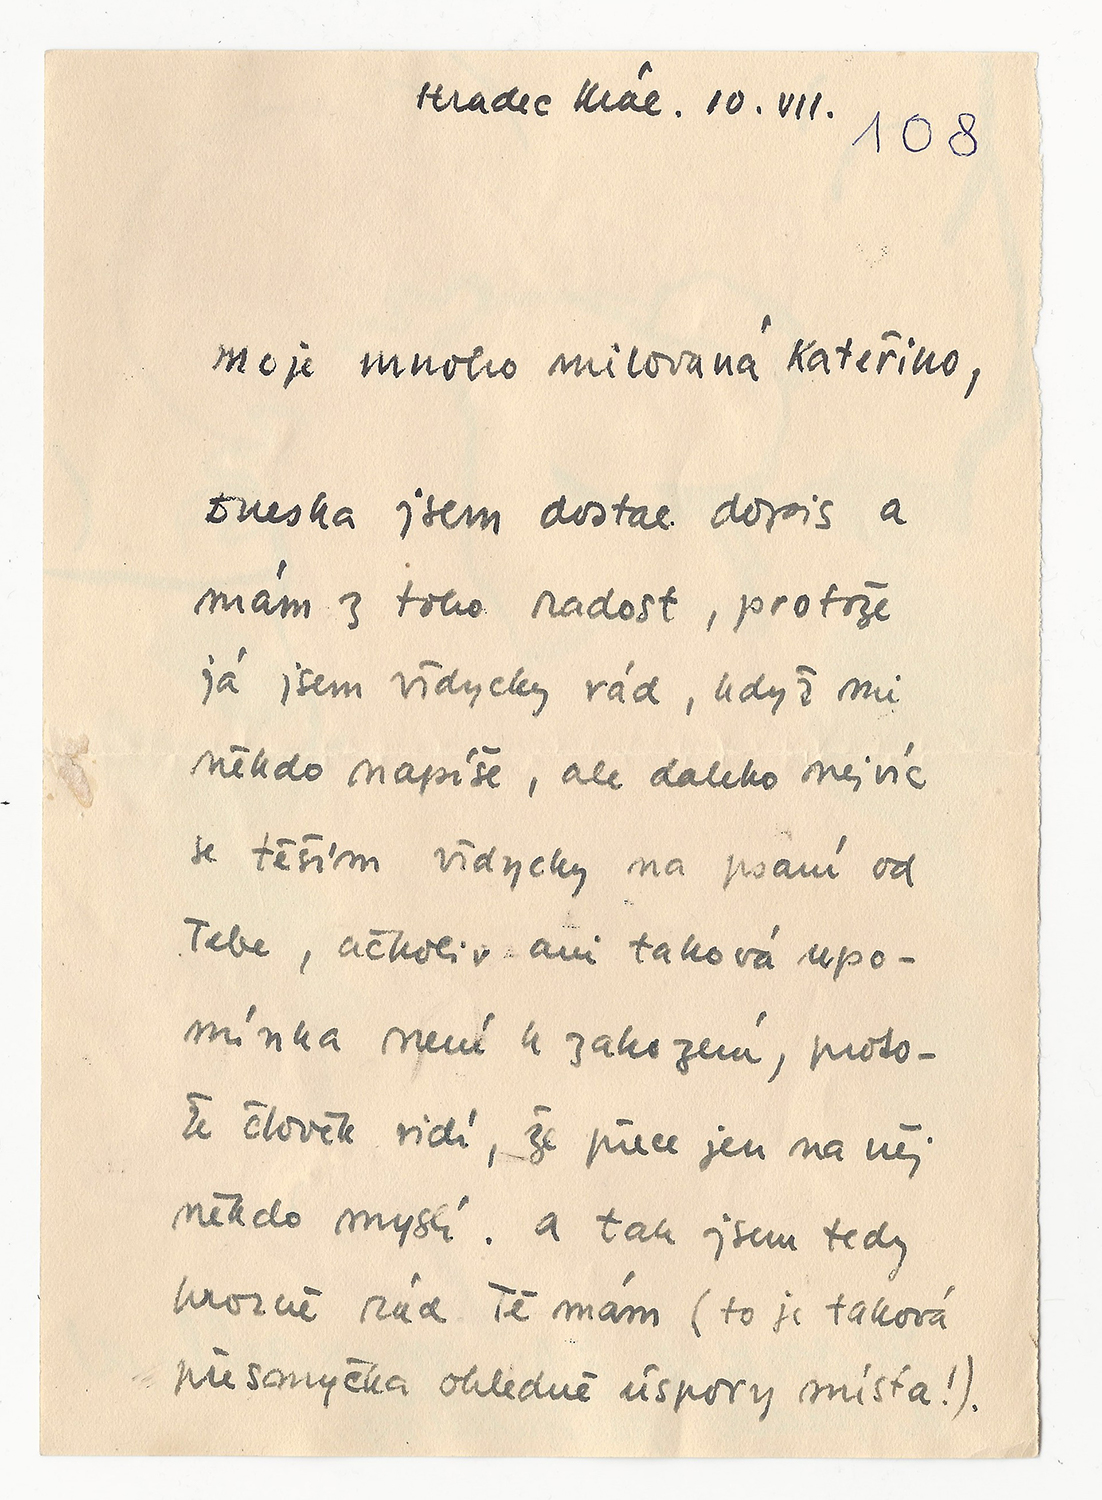 Hradec Král. 10. VII.
108
Moje mnoho milovaná Kateřino,
Dneska jsem dostal dopis a
mám z toho radost, protože
já jsem vždycky rád, když mi
někdo napíše, ale daleko nejvíc
se těším vždycky na psaní od
Tebe, ačkoliv ani taková upo-
mínka není k zahození, proto-
že člověk vidí, že přece jen na něj
někdo myslí. a tak jsem tedy
hrozně rád Tě mám (to je taková
přesmyčka ohledně úspory místa!).